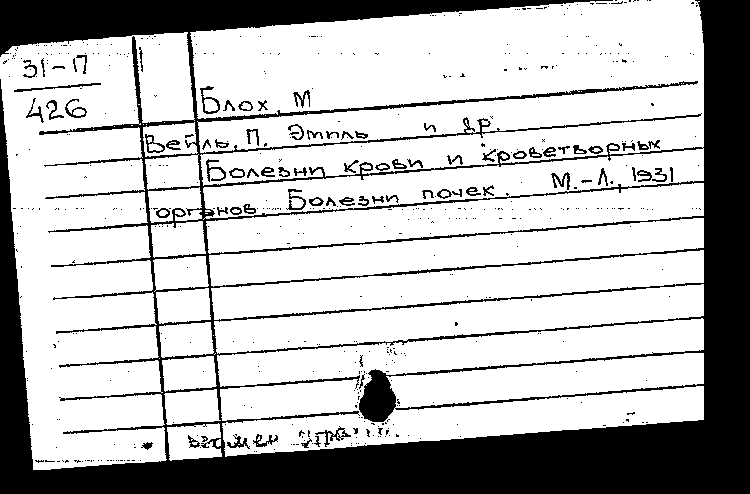 31-П
426
Блох, М
Вейль, П. Эмиль и др.
Болезни крови и кроветворных
органов. Болезни почек. М.-Л., 1931
взамен